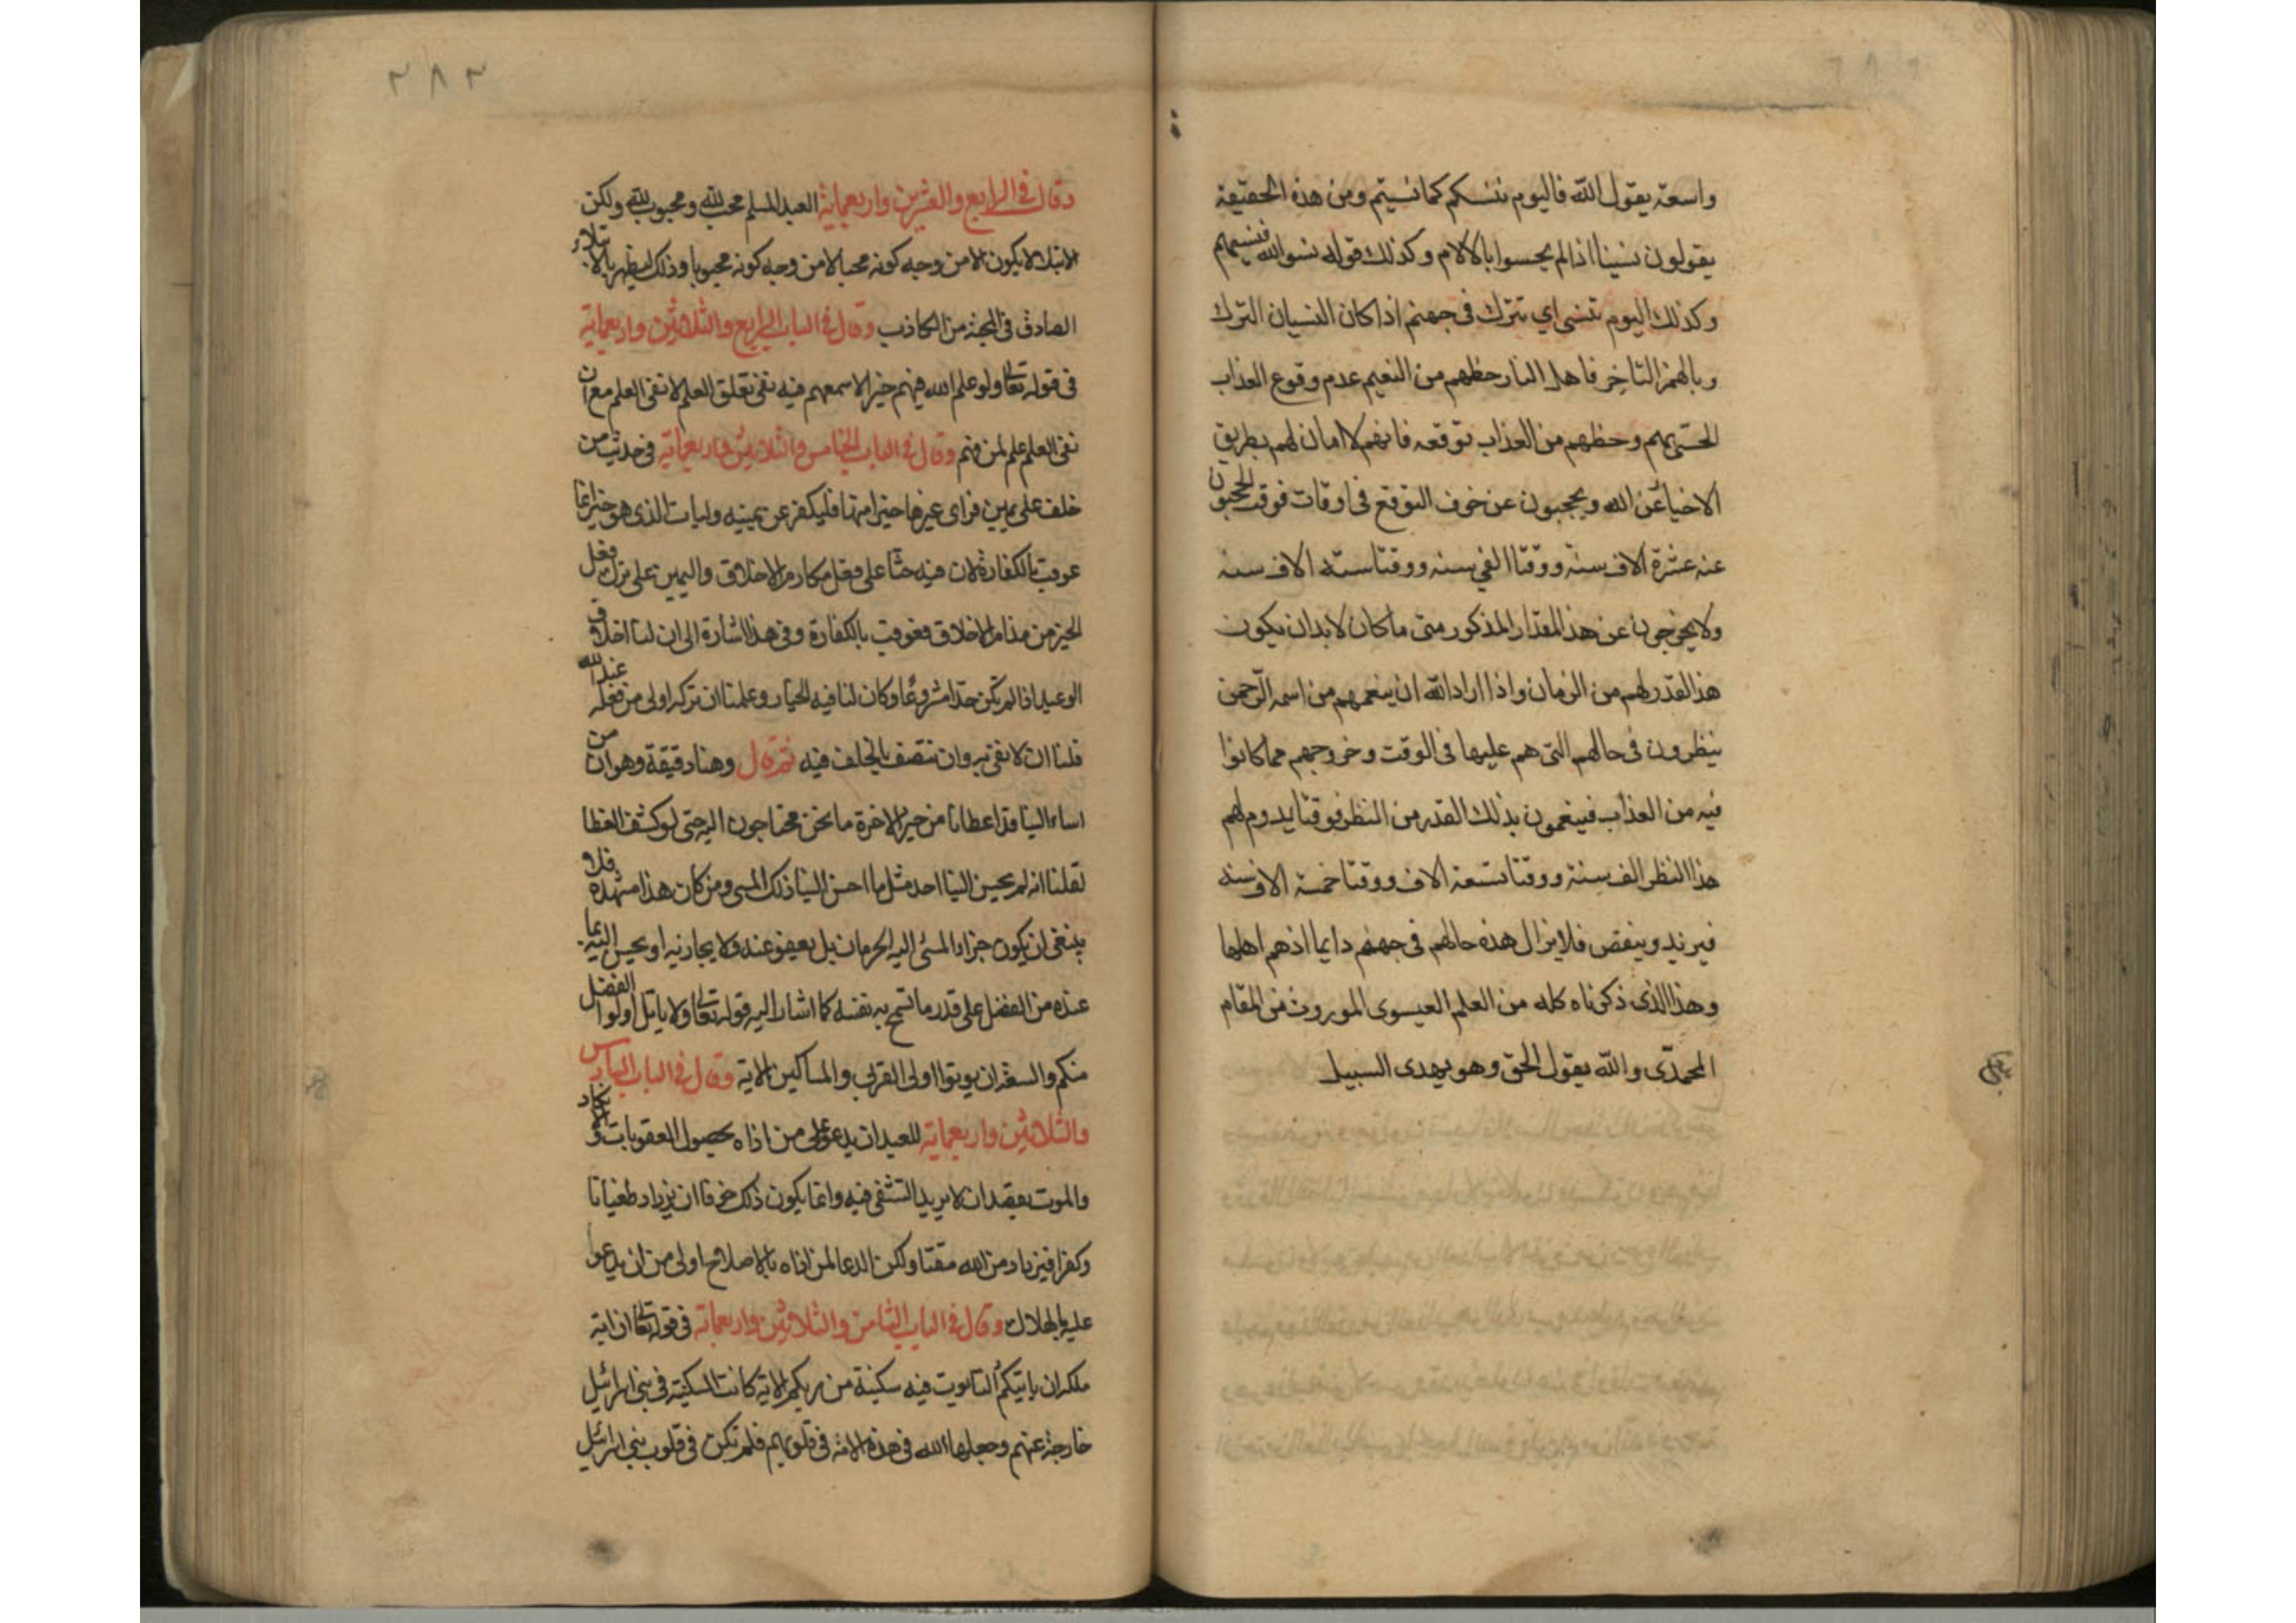 واسعة يقول الله فاليوم ننسكم كما نسيتم ومن هذه الحقيقة
يقولون نسينا اذا لم يحسوا بالالام وكذلك قوله نسوا الله فنسيهم
وكذلك اليوم تنسى اي تترك في جهنم اذا كان النسيان الترك
وبالهمز التاخر فاهل النار حظهم من النعيم عدم وقوع العذاب
الحسي بهم وحظهم من العذاب توقعه فانهم لا امان لهم بطريق
الاخبار عن الله ويحجبون عن خوف التوقع في اوقات فوقت يحجبون
عنه عشرة الاف سنة ووقتا الفي سنه ووقتا ستة الاف سنه
ولا يخرجون عن هذا المقدار المذكور متى ما كان لابد ان يكون
هذا القدر لهم من الزمان واذا اراد الله ان ينعمهم من اسمه الرحمن
ينظرون في حالهم التي هم عليها في الوقت وخروجهم مما كانوا
فيه من العذاب فينعمون بذلك القدر من النظر فوقتا يدوم لهم
هذا النظر الف سنة ووقتا تسعة الاف ووقتا خمسة الاف سنه
فيزيد وينقص فلا يزال هذه حالهم في جهنم دايما اذ هم اهلها
وهذا الذى ذكرناه كله من العلم العيسوى الموروث من المقام
المحمدّى والله يقول الحق وهو يهدى السبيل
٢٨٢
وقال في الرابع والعشرين واربعماية العبد المسلم محب لله ومحبوب لله ولكن
الابتلا لا يكون الا من وجه كونه محبا لا من وجه كونه محبوبا وذلك ليظهر بالابتلاء
الصادق في المحبة من الكاذب وقال في الباب الرابع والثلاثين واربعماية
في قوله تعالى ولو علم الله فيهم خيرا لاسمعهم فيه نفي تعلق العلم لا نفي العلم مع ان
نفي العلم علم لمن فهم وقال في الباب الخامس والثلاثين واربعماية في حديث من
حلف على يمين فراى غيرها خيرا منها فليكفر عن يمينه وليات الذى هو خير انما
عوقب بالكفارة لان فيه حثا على فعل مكارم الاخلاق واليمين على ترك فعل
الخير من مذام الاخلاق فعوقب بالكفارة وفي هذا اشارة الى ان لنا اخلاف
الوعيد اذا لم تكن حدا مشروعا وكان لنا فيه الخيار وعلمنا ان تركه اولى من فعله عند الله
فلنا ان لا نفي به وان نتصف بالخلف فيه ثم قال وهنا دقيقة وهو ان من
اساء الينا قد اعطانا من خير الاخرة ما نحن محتاجون اليه حتى لو كشف الغطا
لقلنا انه لم يحسن الينا احد مثل ما احسن الينا ذلك المسي ومن كان هذا مشهده فلا
ينبغي ان يكون جزاوا المسئ اليه الحرمان بل يعفو عنه ولا يجازيه او يحسن اليه بما
عنده من الفضل على قدر ما تسمح به نفسه كما اشار اليه قوله تعالى ولا ياتل اولوا الفضل
منكم والسعة ان يوتوا اولى القربى والمساكين الاية وقال في الباب السادس
والثلاثين واربعماية للعبد ان يدعو على من اذاه بحصول العقوبات والانكاد
والموت بقصد ان لا يريد التشفي فيه وانما يكون ذلك خوفا ان يزداد طغيانا
وكفرا فيزداد من الله مقتا ولكن الدعا لمن اذاه بالاصلاح اولى من ان يدعوا
عليه بالهلاك وقال في الباب الثامن والثلاثين واربعماية في قوله تعالى ان اية
ملكه ان ياتيكم التابوت فيه سكينة من ربكم الاية كانت السكينة في بني اسرائيل
خارجة عنهم وجعلها الله في هذه الامة في قلوبهم فلم تكن في قلوب بني اسرائيل